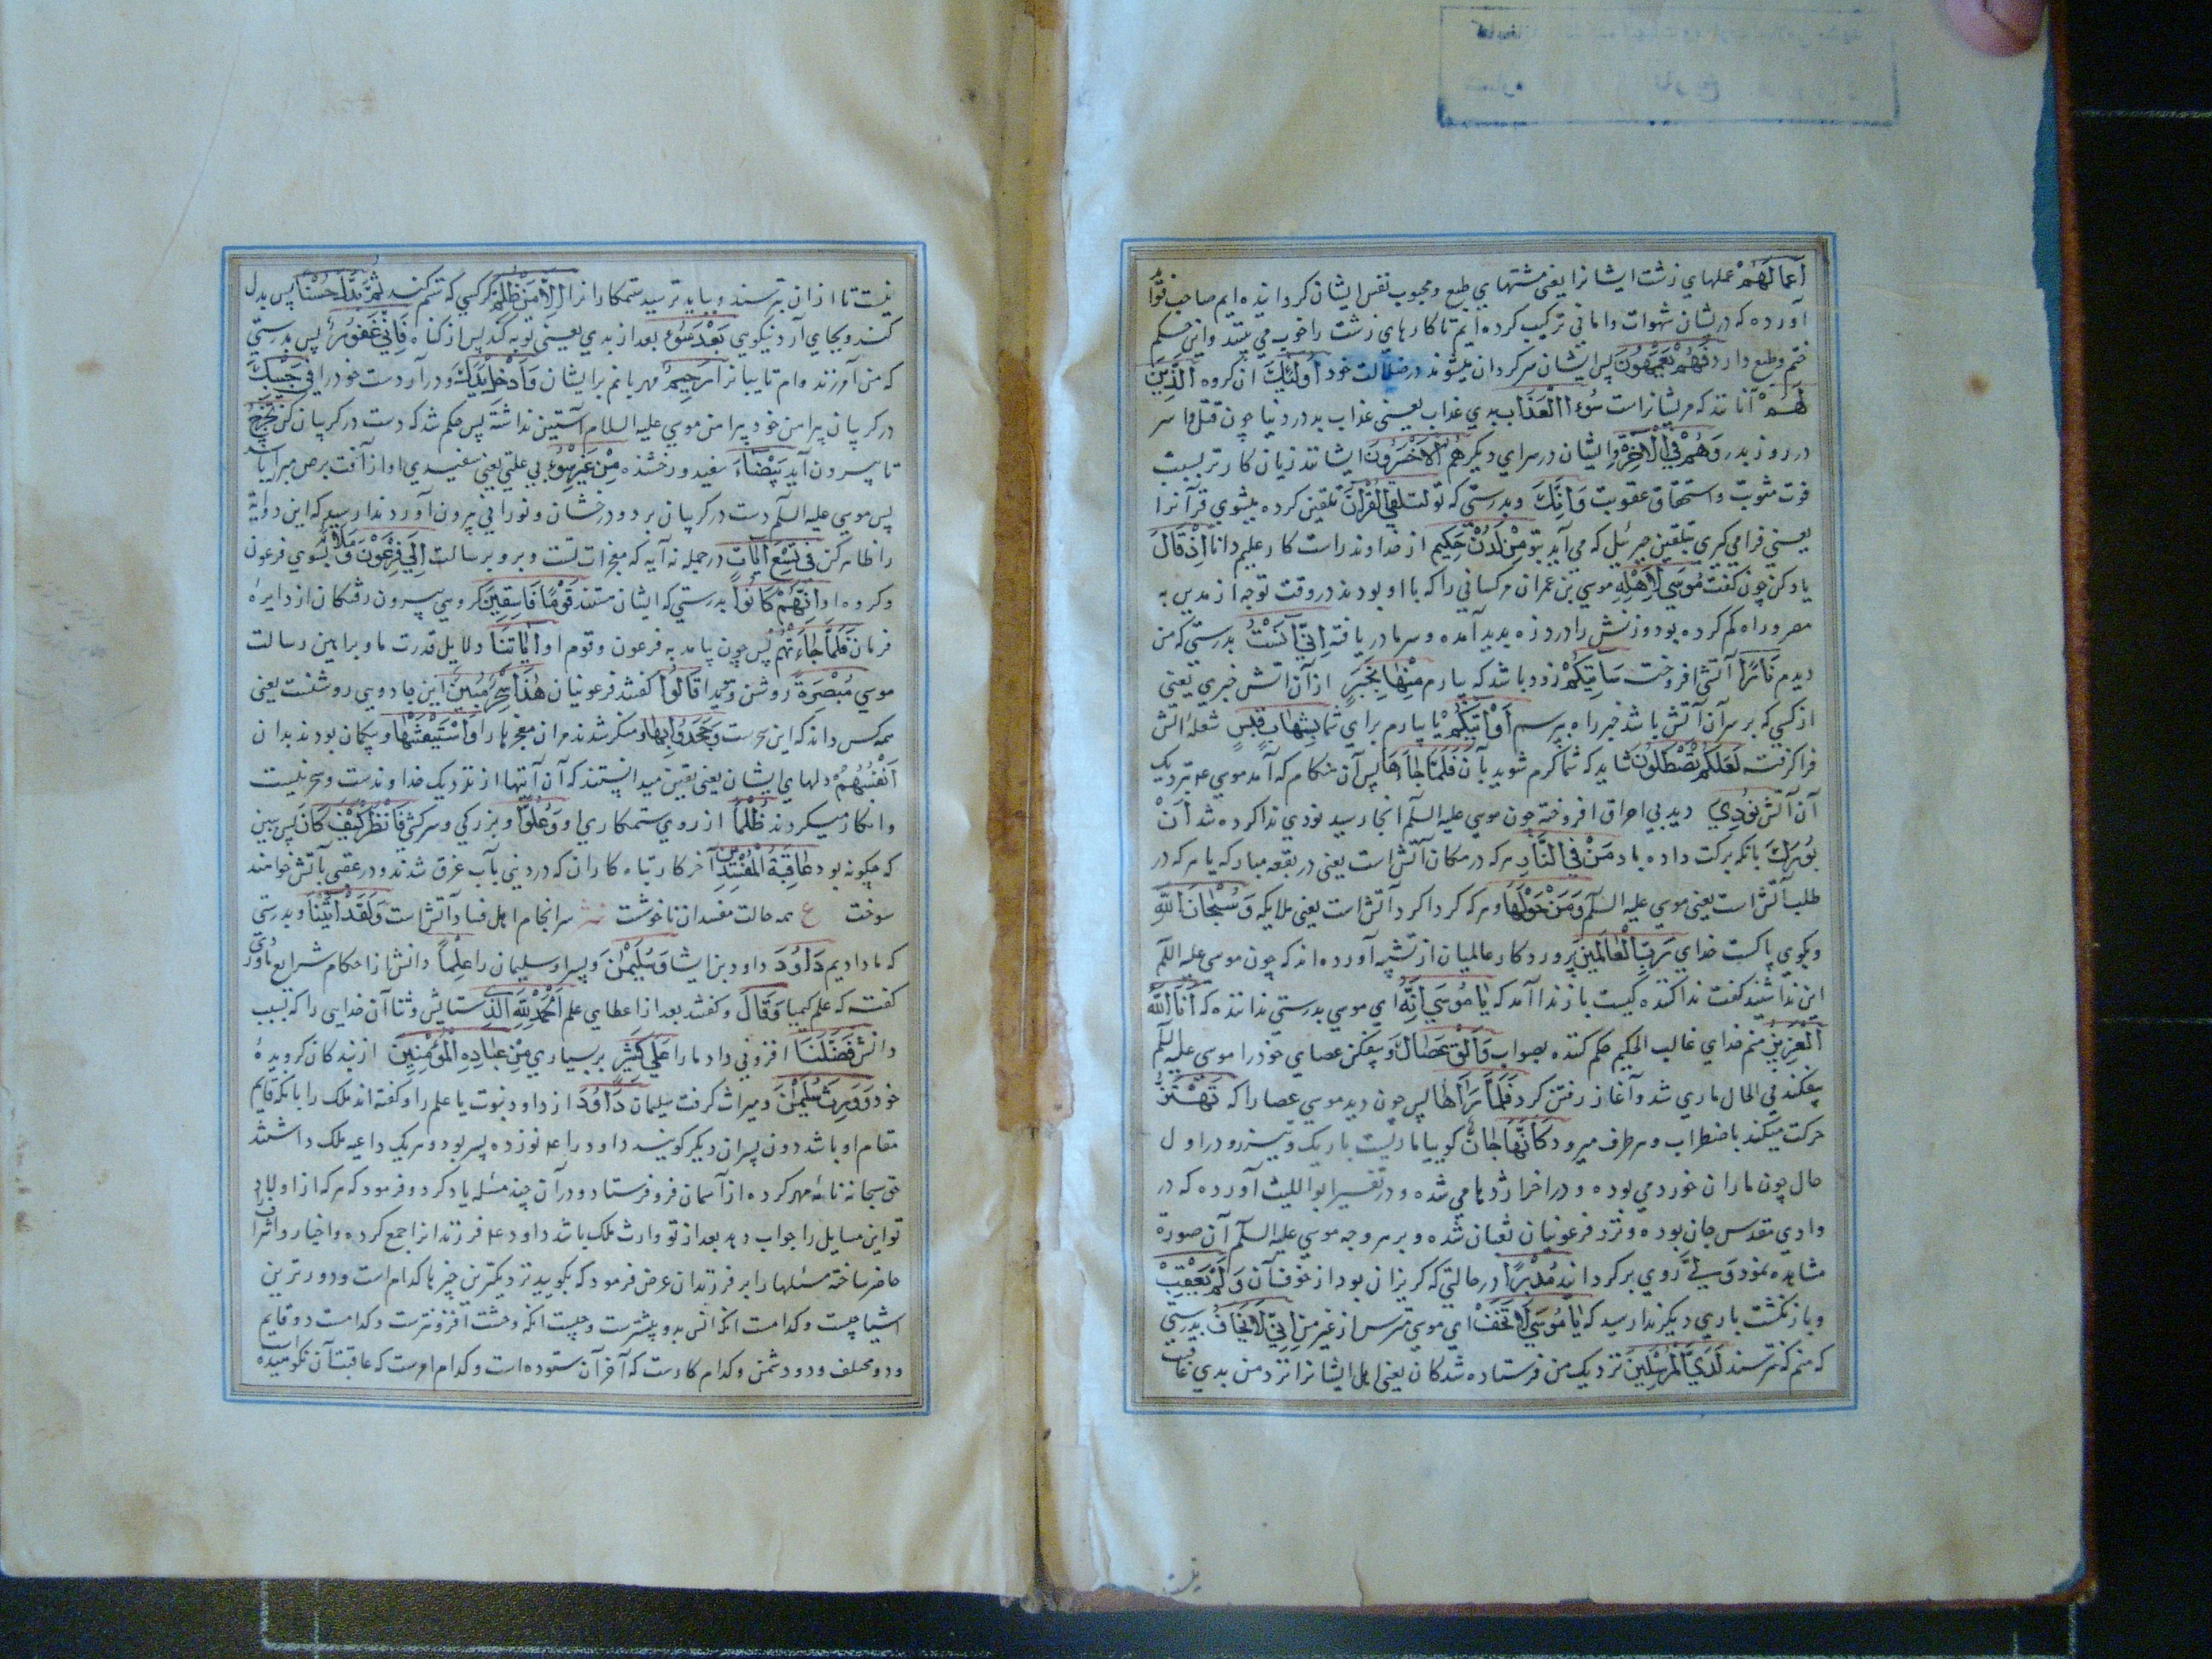 أَعْمَالَهُمْ عملهاي زشت ايشانرا يعني مشتهاي طبع ومحبوب نفس ايشان كردانيده ايم صاحب
آورده كه درايشان شهوات واماني تركيب كرده ايم تا كارهاي زشت را خوب مي بينند واين حكم
ختم وطبع دارد فَهُمْ يَعْمَهُونَ پس ايشان سركردان ميشوند در ضلالت خود أُولَئِكَ آن كروه الَّذِينَ
لَهُمْ آنانند كه مريشانراست سُوءُ الْعَذَابِ بدي عذاب يعني عذاب بد در دنيا چون قتل واسر
در روز بدر وَهُمْ فِي الْآخِرَةِ وايشان در سراي ديكر هُمُ الْأَخْسَرُونَ ايشانند زيان كارتر بسبب
فوت مثوبت واستحقاق عقوبت وَإِنَّكَ وبدرستي كه تو لَتُلَقَّى الْقُرْآنَ تلقين كرده ميشوي قرآنرا
يعني فرا ميكيري بتلقين جبرئيل كه مي آيد بتو مِنْ لَدُنْ حَكِيمٍ از خداوند راست كار عليم دانا إِذْ قَالَ
ياد كن چون كفت مُوسَى لِأَهْلِهِ موسي بن عمران مر كساني را كه با او بودند در وقت توجه از مدين به
مصر وراه كم كرده بود وزنش را درد زه بديد آمده وسرما دريافته إِنِّي آنَسْتُ بدرستي كه من
ديدم نَارًا آتشي افروخت سَآتِيكُمْ زود باشد كه بيارم مِنْهَا بِخَبَرٍ از آن آتش خبري يعني
از كسي كه بر سر آن آتش باشد خبر راه بپرسم أَوْ آتِيكُمْ يا بيارم براي شما بِشِهَابٍ قَبَسٍ شعله آتش
فرا كرفته لَعَلَّكُمْ تَصْطَلُونَ شايد كه شما كرم شويد بآن فَلَمَّا جَاءَهَا پس آن هنكام كه آمد موسي ع بنزديك
آن آتش نُودِيَ ديد بي احراق افروخته چون موسي عليه السلم آنجا رسيد نودي ندا كرده شد أَنْ
بُورِكَ بآنكه بركت داده باد مَنْ فِي النَّارِ هركه در مكان آتش است يعني در بقعه مباركه يا هركه در
طلب آتش است يعني موسي عليه السلم وَمَنْ حَوْلَهَا وهركه كرداكرد آتش است يعني ملايكه وَسُبْحَانَ اللَّهِ
وبكوي پاكست خداي رَبِّ الْعَالَمِينَ پروردكار عالميان از تشبيه آورده اند كه چون موسي عليه السلم
اين ندا شنيد كفت ندا كننده كيست باز ندا آمد كه يَا مُوسَى إِنَّهُ اي موسي بدرستي ندا كننده كه أَنَا اللَّهُ
الْعَزِيزُ منم خداي غالب الحكيم حكم كننده بصواب وَأَلْقِ عَصَاكَ وبيفكن عصاي خود را موسي عليه السلم
بيفكند في الحال ماري شد وآغاز رفتن كرد فَلَمَّا رَآهَا پس چون ديد موسي عصا را كه تَهْتَزُّ
حركت ميكند باضطراب وهر طرف ميرود كَأَنَّهَا جَانٌّ كوييا ماريست باريك وتيزرو در اول
حال چون ماران خورد مي بوده ودر آخر اژدها مي شده ودر تفسير ابوالليث آورده كه در
وادي مقدس جان بوده ونزد فرعونيان ثعبان شده وبر هر وجه موسي عليه السلم آن صورة
مشاهده نمود وَلَّى روي بركردانيد مُدْبِرًا در حالتي كه كريزان بود از خوف آن وَلَمْ يُعَقِّبْ
وباز نكشت باري ديكر ندا رسيد كه يَا مُوسَى لَا تَخَفْ اي موسي مترس از غير من إِنِّي لَا يَخَافُ بدرستي
كه منم كه نترسند لَدَيَّ الْمُرْسَلُونَ نزديك من فرستاده شدكان يعني اهل ايشانرا نزد من بدي عاقبت
نيست
نيست تا از ان بترسند وبايد ترسيد ستمكارانرا إِلَّا مَنْ ظَلَمَ مكر كسي كه ستم كند ثُمَّ بَدَّلَ حُسْنًا پس بدل
كند وبجاي آرد نيكويي بَعْدَ سُوءٍ بعد از بدي يعني توبه كند پس از كناه فَإِنِّي غَفُورٌ پس بدرستي
كه من آمرزنده ام تايبانرا رَحِيمٌ مهربانم برايشان وَأَدْخِلْ يَدَكَ ودرآر دست خود را فِي جَيْبِكَ
در كريبان پيراهن خود پيراهن موسي عليه السلام آستين نداشته پس حكم شد كه دست در كريبان كن تَخْرُجْ
تا بيرون آيد بَيْضَاءَ سفيد ورخشنده مِنْ غَيْرِ سُوءٍ بي علتي يعني سفيدي او از آفت برص مبرا باشد
پس موسي عليه السلم دست در كريبان برد ودرخشان ونوراني بيرون آورد ندا رسيد كه اين دو آية
را ظاهر كن فِي تِسْعِ آيَاتٍ در جمله نه آيه كه معجزات تست وبرو برسالت إِلَى فِرْعَوْنَ وَمَلَأِهِ بسوي فرعون
وكروه او إِنَّهُمْ كَانُوا بدرستي كه ايشان هستند قَوْمًا فَاسِقِينَ كروهي بيرون رفتكان از دايره
فرمان فَلَمَّا جَاءَتْهُمْ پس چون بيامد به فرعون وقوم او آيَاتُنَا دلايل قدرت ما وبراهين رسالت
موسي مُبْصِرَةً روشن وهويدا قَالُوا كفتند فرعونيان هَذَا سِحْرٌ مُبِينٌ اين جادويي روشنست يعني
همه كس داند كه اين سحرست وَجَحَدُوا بِهَا ومنكر شدند مر ان معجزها را وَاسْتَيْقَنَتْهَا وبيكمان بودند بدان
أَنْفُسُهُمْ دلهاي ايشان يعني بيقين ميدانستند كه آن آيتها از نزديك خداوندست وسحر نيست
وانكار ميكردند ظُلْمًا از روي ستمكاري او وَعُلُوًّا وبزركي وسركشي فَانْظُرْ كَيْفَ كَانَ پس ببين
كه چكونه بود عَاقِبَةُ الْمُفْسِدِينَ آخر كار تباه كاران كه در دنيي بآب غرق شدند ودر عقبي بآتش خواهند
سوخت ع همه حالت مفسدان ناخوشت سرانجام اهل فساد آتش است وَلَقَدْ آتَيْنَا وبدرستي
كه ما داديم دَاوُدَ داود بن ايشا وَسُلَيْمَنَ وپسر او سليمان را عِلْمًا دانش از احكام شرايع
كفته كه علم كيميا وَقَالَا وكفتند بعد از اعطاي علم الْحَمْدُ لِلَّهِ الَّذِي ستايش وثنا آن خدايي را كه بسبب
دانش فَضَّلَنَا افزوني داد ما را عَلَى كَثِيرٍ بر بسياري مِنْ عِبَادِهِ الْمُؤْمِنِينَ از بندكان كرويده
خود وَوَرِثَ سُلَيْمَنُ وميراث كرفت سليمان دَاوُدَ از داود نبوت يا علم را وكفته اند ملك را بآنكه قايم
مقام او باشد دون پسران ديكر كويند داود را ع نوزده پسر بود وهريك داعيه ملك داشتند
حق سبحانه نامه مهر كرده از آسمان فرو فرستاد ودر آن چند مسئله ياد كرد وفرمود كه هركه از اولاد
تو اين مسايل را جواب دهد بعد از تو وارث ملك باشد داود ع فرزندانرا جمع كرده واحبار واشراف
حاضر ساخته مسئلها را بر فرزندان عرض فرمود كه بكوييد نزديكترين چيزها كدام است ودورترين
اشيا چيست وكدامست انكه انس بدو بيشترست وچيست انكه وحشت افزونترست وكدامست دو قايم
ودو مختلف ودو دشمن وكدام كارست كه آخر آن ستوده است وكدام امرست كه عاقبت آن نكوهيده است